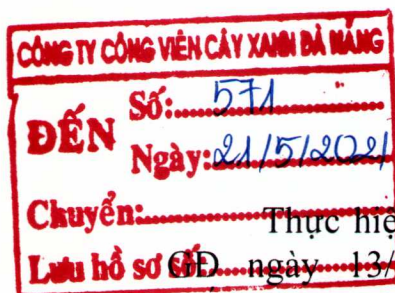 CÔNG TY CÔNG VIÊN CÂY XANH ĐÀ NẴNG
ĐẾN
Số: 571
Ngày: 21/5/2021
Chuyển:
Thực hiệ
Lưu hồ sơ số:
GĐ ngày 13/